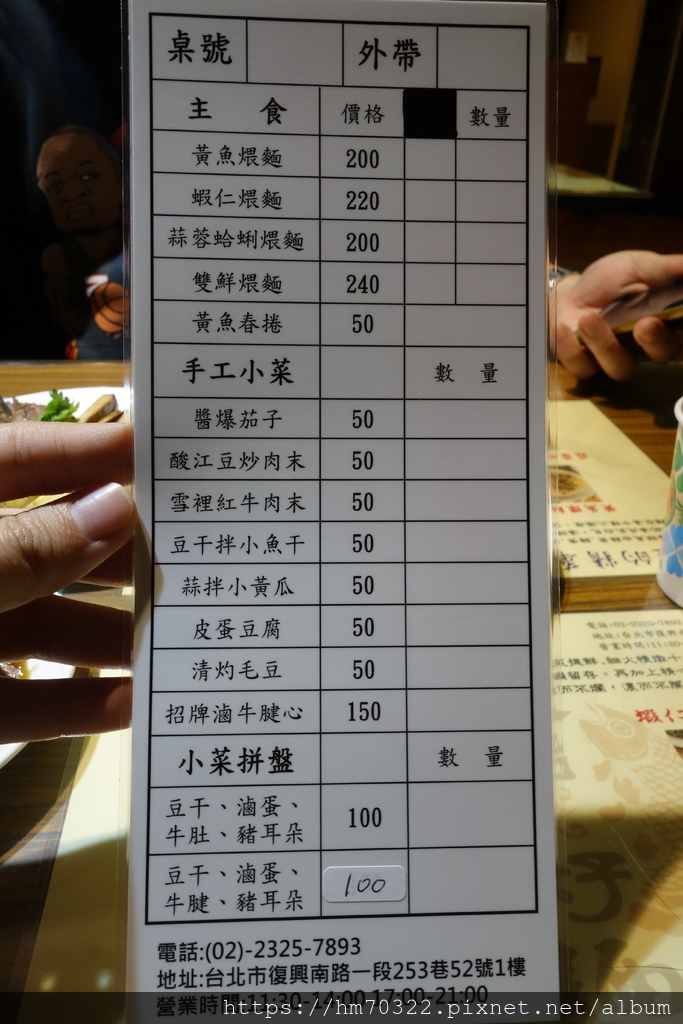 桌號 外帶
主 食 價格 數量
黃魚煨麵 200
蝦仁煨麵 220
蒜蓉蛤蜊煨麵 200
雙鮮煨麵 240
黃魚春捲 50
手工小菜 數 量
醬爆茄子 50
酸江豆炒肉末 50
雪裡紅牛肉末 50
豆干拌小魚干 50
蒜拌小黃瓜 50
皮蛋豆腐 50
清灼毛豆 50
招牌滷牛腱心 150
小菜拼盤 數 量
豆干、滷蛋、
牛肚、豬耳朵 100
豆干、滷蛋、
牛腱、豬耳朵 100
電話:(02)-2325-7893
地址:台北市復興南路一段253巷52號1樓
營業時間:11:30-14:00 17:00-21:00
https://hm70322.pixnet.net/album
電話:02-2325-7893
蝦仁